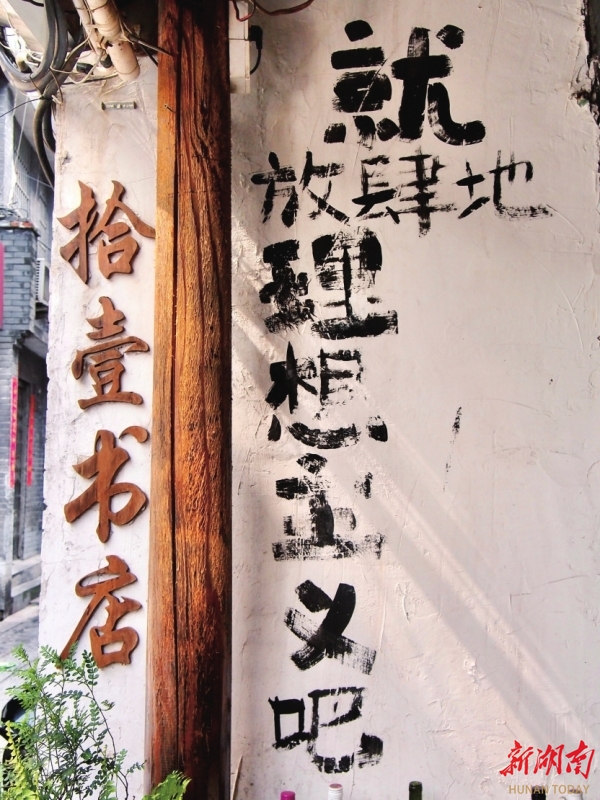 拾壹书店
就
放肆地
理想主义吧
新湖南
HUNAN TODAY